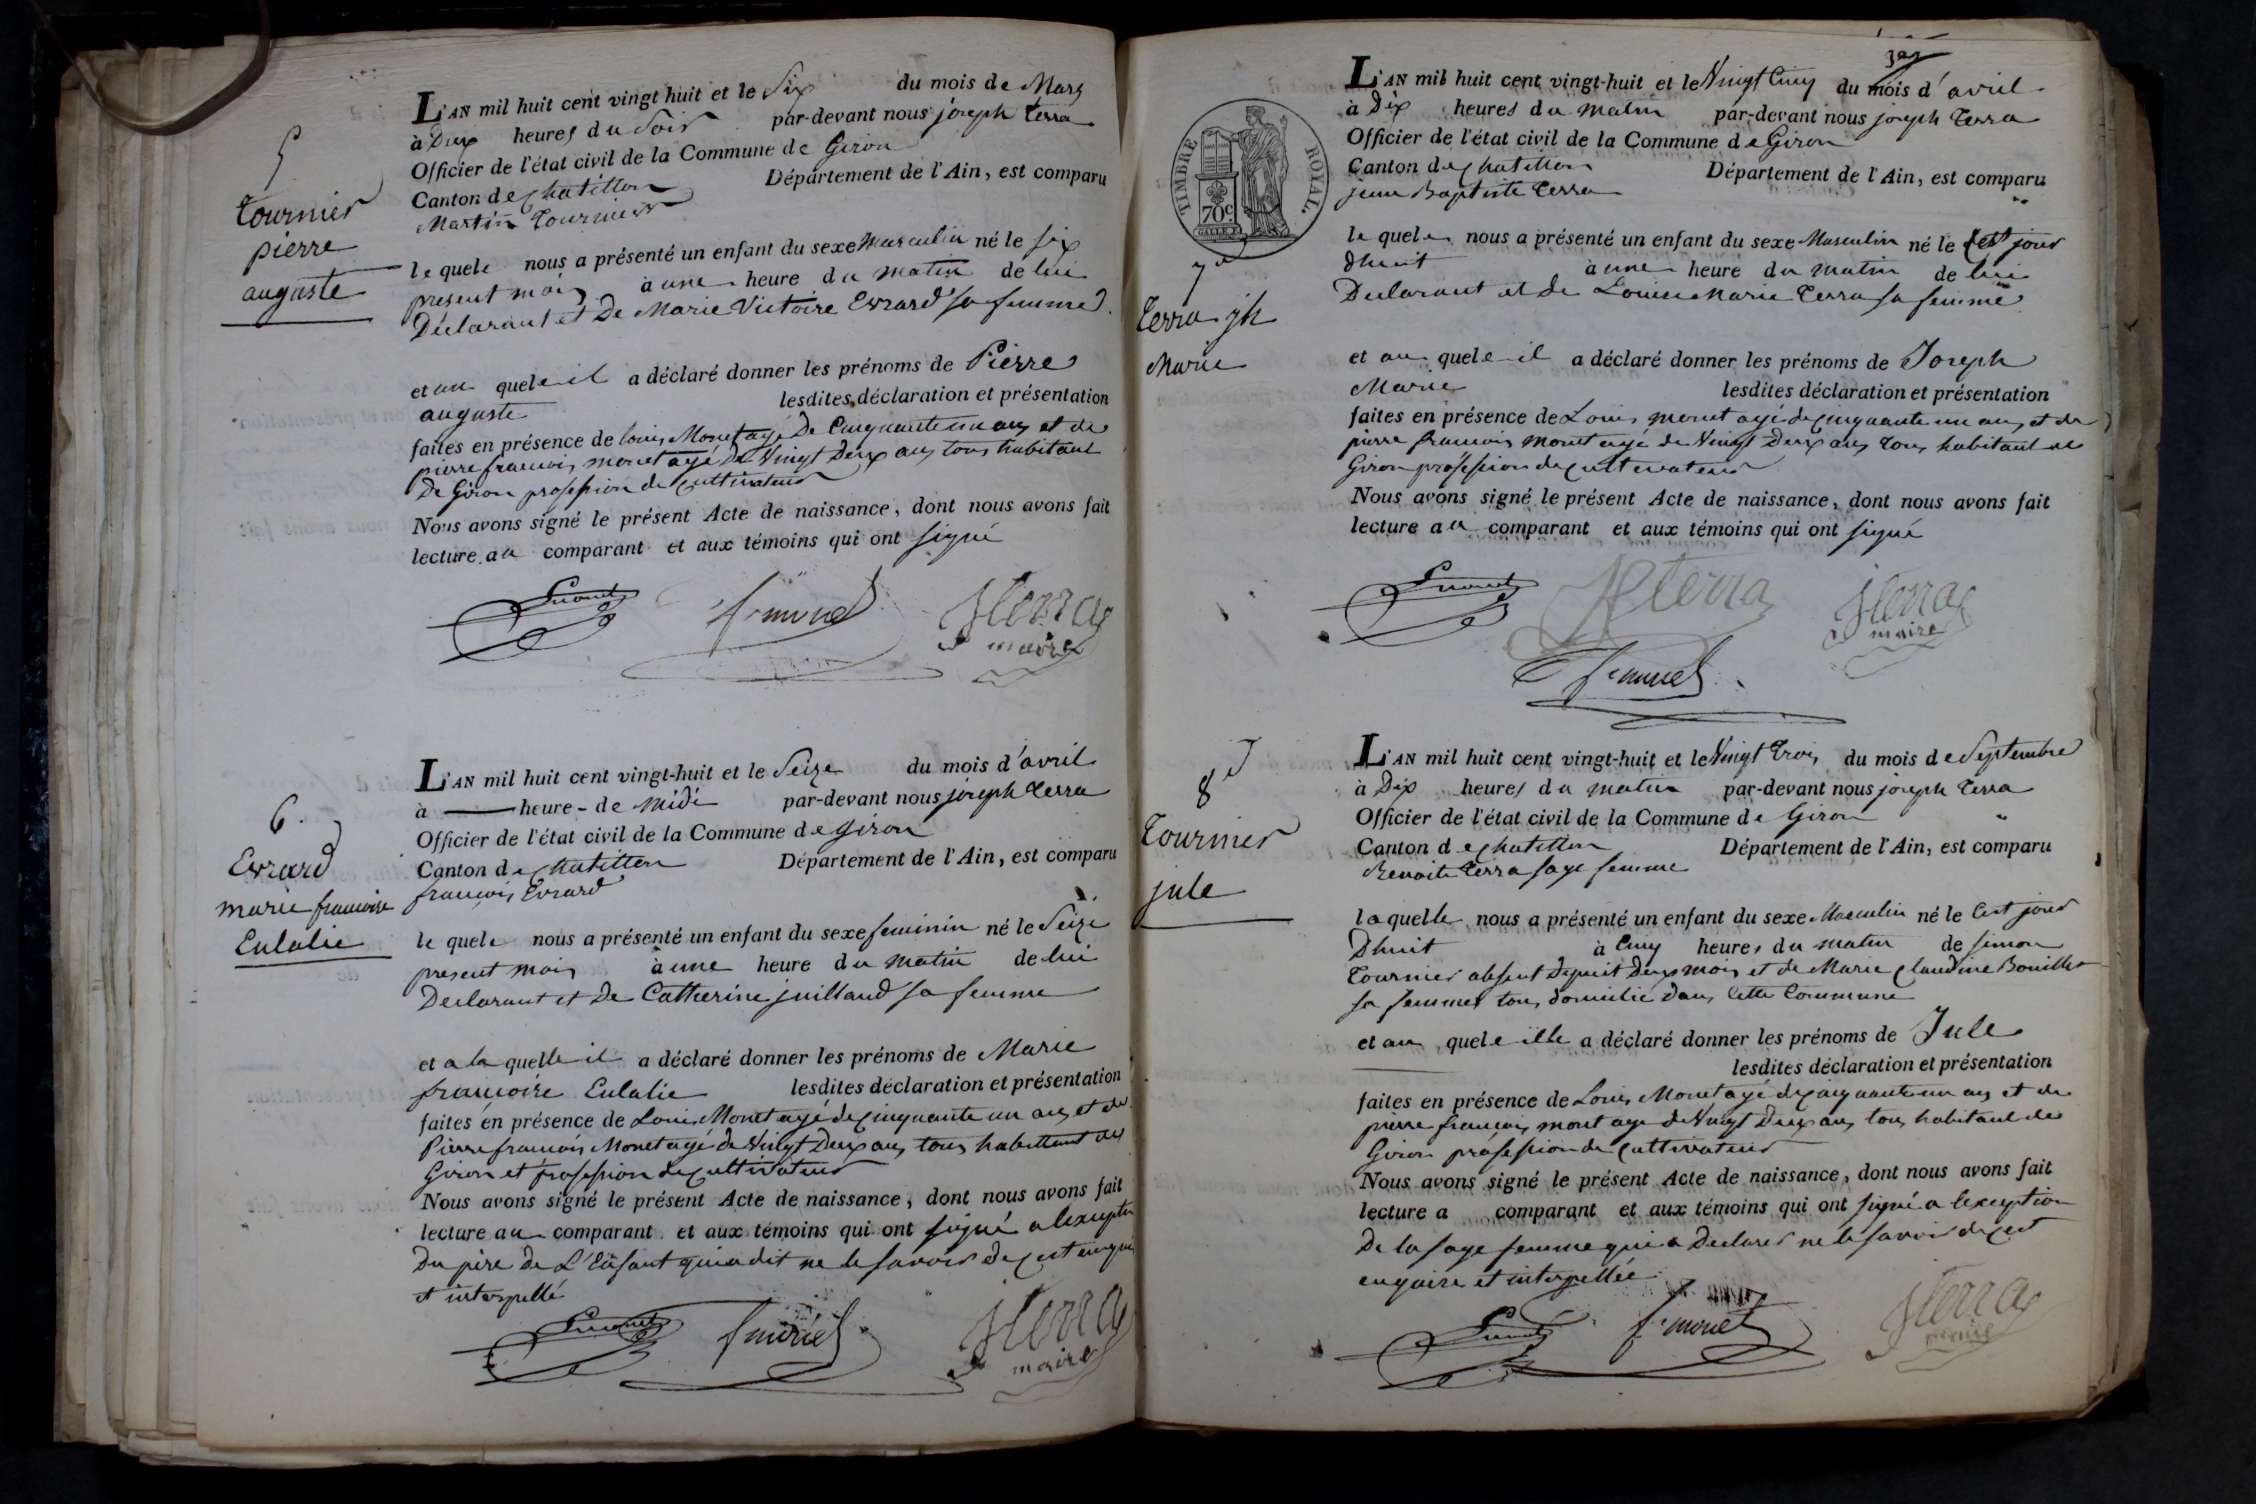 5
Tournier
pierre
auguste
L'AN mil huit cent vingt huit et le Six du mois de Mars
à Deux heures du Soir par-devant nous joseph Terra
Officier de l'état civil de la Commune de Giron
Canton de chatillon Département de l'Ain, est comparu
Martin Tournier
le quel nous a présenté un enfant du sexe Masculin né le six
present mois à une heure du matin de lui
Déclarant et De Marie Victoire Evrard sa femme
et au quel il a déclaré donner les prénoms de Pierre
auguste lesdites déclaration et présentation
faites en présence de louis Monet agé De Cinquante un ans et de
pierre francois monet agé De Vingt Deux ans tous habitant
De Giron profession de cultivateur
Nous avons signé le présent Acte de naissance, dont nous avons fait
lecture au comparant et aux témoins qui ont signé
L monet f monet J Terra
maire
6.
Evrard
marie francoise
Eulalie
L'AN mil huit cent vingt-huit et le Seize du mois d'avril
à heure de midi par-devant nous joseph Terra
Officier de l'état civil de la Commune de giron
Canton de chatillon Département de l'Ain, est comparu
francois Evrard
le quel nous a présenté un enfant du sexe feminin né le Seize
present mois à une heure du matin de lui
Declarant et De Catherine juilland sa femme
et a la quelle il a déclaré donner les prénoms de Marie
francoise Eulalie lesdites déclaration et présentation
faites en présence de Louis Monet agé de cinquante un ans et de
Pierre francois Monet agé de Vingt Deux ans tous habittant de
Giron et profession de cultivateur
Nous avons signé le présent Acte de naissance, dont nous avons fait
lecture au comparant et aux témoins qui ont signé a lexception
Du père de L'Enfant qui a dit ne le savoir de cest enquis
et interpellé
L monet f monet J Terra
maire
329
TIMBRE ROYAL.
70c.
7e
Terra jh
Marie
L'AN mil huit cent vingt-huit et le Vingt Cinq du mois d'avril
à Dix heures du matin par-devant nous joseph Terra
Officier de l'état civil de la Commune de Giron
Canton de chatillon Département de l'Ain, est comparu
jean Baptiste Terra
le quel nous a présenté un enfant du sexe Masculin né le Cest jour
dhuit à une heure du matin de lui
Declarant et de Louise Marie Terra sa femme
et au quel il a déclaré donner les prénoms de Joseph
Marie lesdites déclaration et présentation
faites en présence de Louis monet agé de cinquante un ans et de
pierre francois monet agé de Vingt Deux ans tous habitant de
Giron profession de cultivateur
Nous avons signé le présent Acte de naissance, dont nous avons fait
lecture au comparant et aux témoins qui ont signé
L monet terra J Terra
maire
f monet
8e
Tournier
jule
L'AN mil huit cent vingt-huit et le Vingt Trois du mois de Septembre
à Dix heures du matin par-devant nous joseph Terra
Officier de l'état civil de la Commune de Giron
Canton de chatillon Département de l'Ain, est comparu
Benoite Terra sage femme
laquelle nous a présenté un enfant du sexe Masculin né le Cest jour
Dhuit à Cinq heures du matin de simon
Tournier absent depuit Deux mois et de Marie Claudine Bouillet
sa femme tous domicilié dans Cette Commune
et au quel ille a déclaré donner les prénoms de Jule
lesdites déclaration et présentation
faites en présence de Louis Monet agé de cinquante un ans et de
pierre françois monet age de Vingt Deux ans tous habitant de
Giron profession de cultivateur
Nous avons signé le présent Acte de naissance, dont nous avons fait
lecture a comparant et aux témoins qui ont signé a lexception
De la sage femme qui a Declarer ne le savoir de cest
enquise et interpellée
L monet f monet J Terra
maire